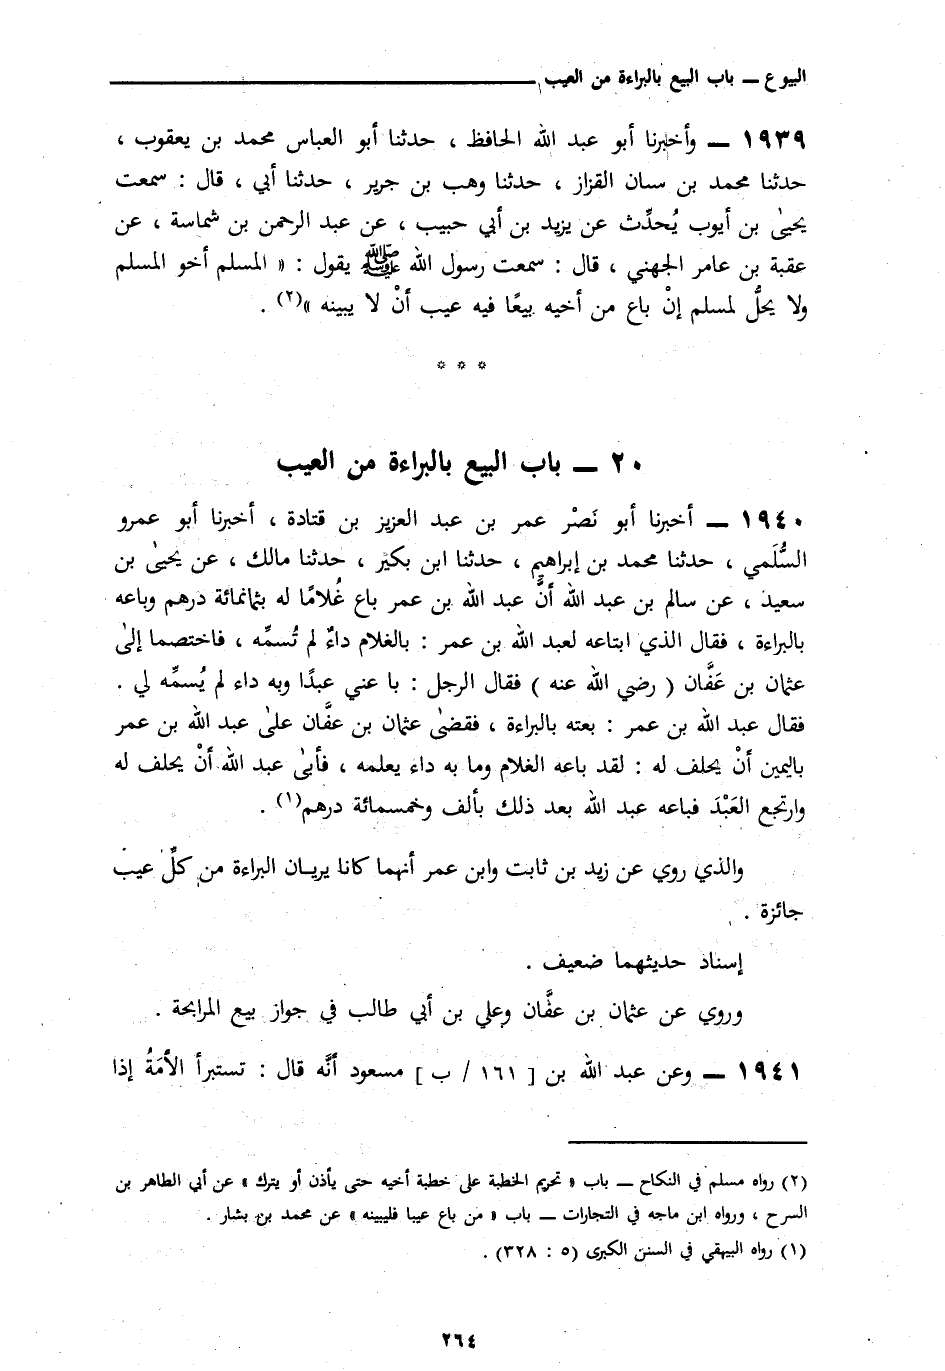 البيوع — باب البيع بالبراءة من العيب
١٩٣٩ — وأخبرنا أبو عبد الله الحافظ ، حدثنا أبو العباس محمد بن يعقوب ،
حدثنا محمد بن سنان القزاز ، حدثنا وهب بن جرير ، حدثنا أبي ، قال : سمعت
يحيىٰ بن أيوب يُحدِّث عن يزيد بن أبي حبيب ، عن عبد الرحمن بن شماسة ، عن
عقبة بن عامر الجهني ، قال : سمعت رسول الله ﷺ يقول : « المسلم أخو المسلم
ولا يحلُّ لمسلم إنْ باع من أخيه بيعًا فيه عيب أنْ لا يبينه »(٢) .
* * *
٢٠ — باب البيع بالبراءة من العيب
١٩٤٠ — أخبرنا أبو نَصْر عمر بن عبد العزيز بن قتادة ، أخبرنا أبو عمرو
السُّلَمي ، حدثنا محمد بن إبراهيم ، حدثنا ابن بكير ، حدثنا مالك ، عن يحيىٰ بن
سعيد ، عن سالم بن عبد الله أنَّ عبد الله بن عمر باع غُلامًا له بثمانمائة درهم وباعه
بالبراءة ، فقال الذي ابتاعه لعبد الله بن عمر : بالغلام داءٌ لم تُسمِّه ، فاختصما إلىٰ
عثمان بن عَفَّان ( رضي الله عنه ) فقال الرجل : با عني عبدًا وبه داء لم يُسمِّه لي .
فقال عبد الله بن عمر : بعته بالبراءة ، فقضىٰ عثمان بن عفَّان علىٰ عبد الله بن عمر
باليمين أنْ يحلف له : لقد باعه الغلام وما به داء يعلمه ، فأبىٰ عبد الله أنْ يحلف له
وارتجع العَبْدَ فباعه عبد الله بعد ذلك بألف وخمسمائة درهم(١) .
والذي روي عن زيد بن ثابت وابن عمر أنهما كانا يريان البراءة من كلِّ عيب
جائزة .
إسناد حديثهما ضعيف .
وروي عن عثمان بن عفَّان وعلي بن أبي طالب في جواز بيع المرابحة .
١٩٤١ — وعن عبد الله بن [ ١٦١ / ب ] مسعود أنَّه قال : تستبرأ الأمَةُ إذا
(٢) رواه مسلم في النكاح — باب « تحريم الخطبة على خطبة أخيه حتى يأذن أو يترك » عن أبي الطاهر بن
السرح ، ورواه ابن ماجه في التجارات — باب « من باع عيبا فليبينه » عن محمد بن بشار .
(١) رواه البيهقي في السنن الكبرى (٥ : ٣٢٨) .
٢٦٤